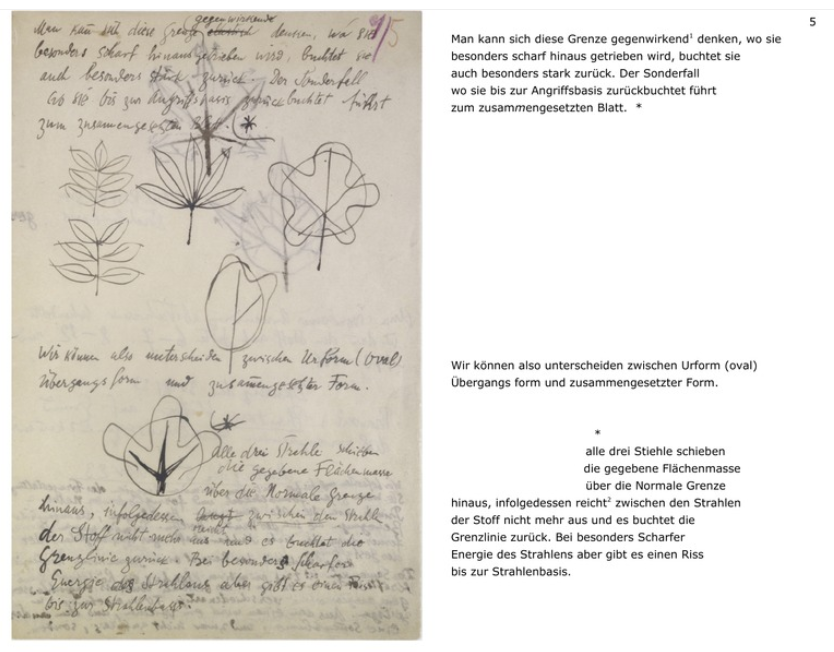 gegenwirkende
Man kann sich diese Grenze denken, wo sie
5
besonders scharf hinausgetrieben wird, buchtet sie
auch besonders stark zurück. Der Sonderfall
wo sie bis zur Angriffsbasis zurückbuchtet führt
zum zusammengesetzten Blatt. *
Wir können also unterscheiden zwischen Urform (oval)
Übergangs form und zusammengesetzter Form.
*
alle drei Strahle schieben
die gegebene Flächenmasse
über die Normale Grenze
hinaus, infolgedessen zwischen den Strahlen
reicht
der Stoff nicht mehr aus und es buchtet die
Grenzlinie zurück. Bei besonders scharfer
Energie des Strahlens aber gibt es einen
bis zur Strahlenbasis.
5
Man kann sich diese Grenze gegenwirkend¹ denken, wo sie
besonders scharf hinaus getrieben wird, buchtet sie
auch besonders stark zurück. Der Sonderfall
wo sie bis zur Angriffsbasis zurückbuchtet führt
zum zusammengesetzten Blatt. *
Wir können also unterscheiden zwischen Urform (oval)
Übergangs form und zusammengesetzter Form.
*
alle drei Stiehle schieben
die gegebene Flächenmasse
über die Normale Grenze
hinaus, infolgedessen reicht² zwischen den Strahlen
der Stoff nicht mehr aus und es buchtet die
Grenzlinie zurück. Bei besonders Scharfer
Energie des Strahlens aber gibt es einen Riss
bis zur Strahlenbasis.